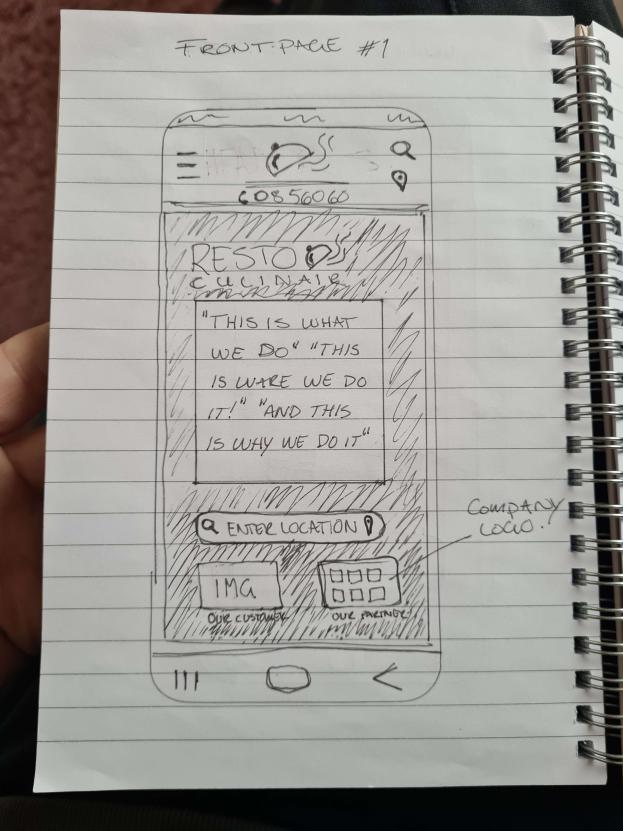 FRONT-PAGE #1
60856060
RESTO
CULINAIR
"THIS IS WHAT
WE DO" "THIS
IS WARE WE DO
IT!" "AND THIS
IS WHY WE DO IT"
ENTER LOCATION
COMPANY
LOGO.
IMG
OUR CUSTOMER
OUR PARTNER